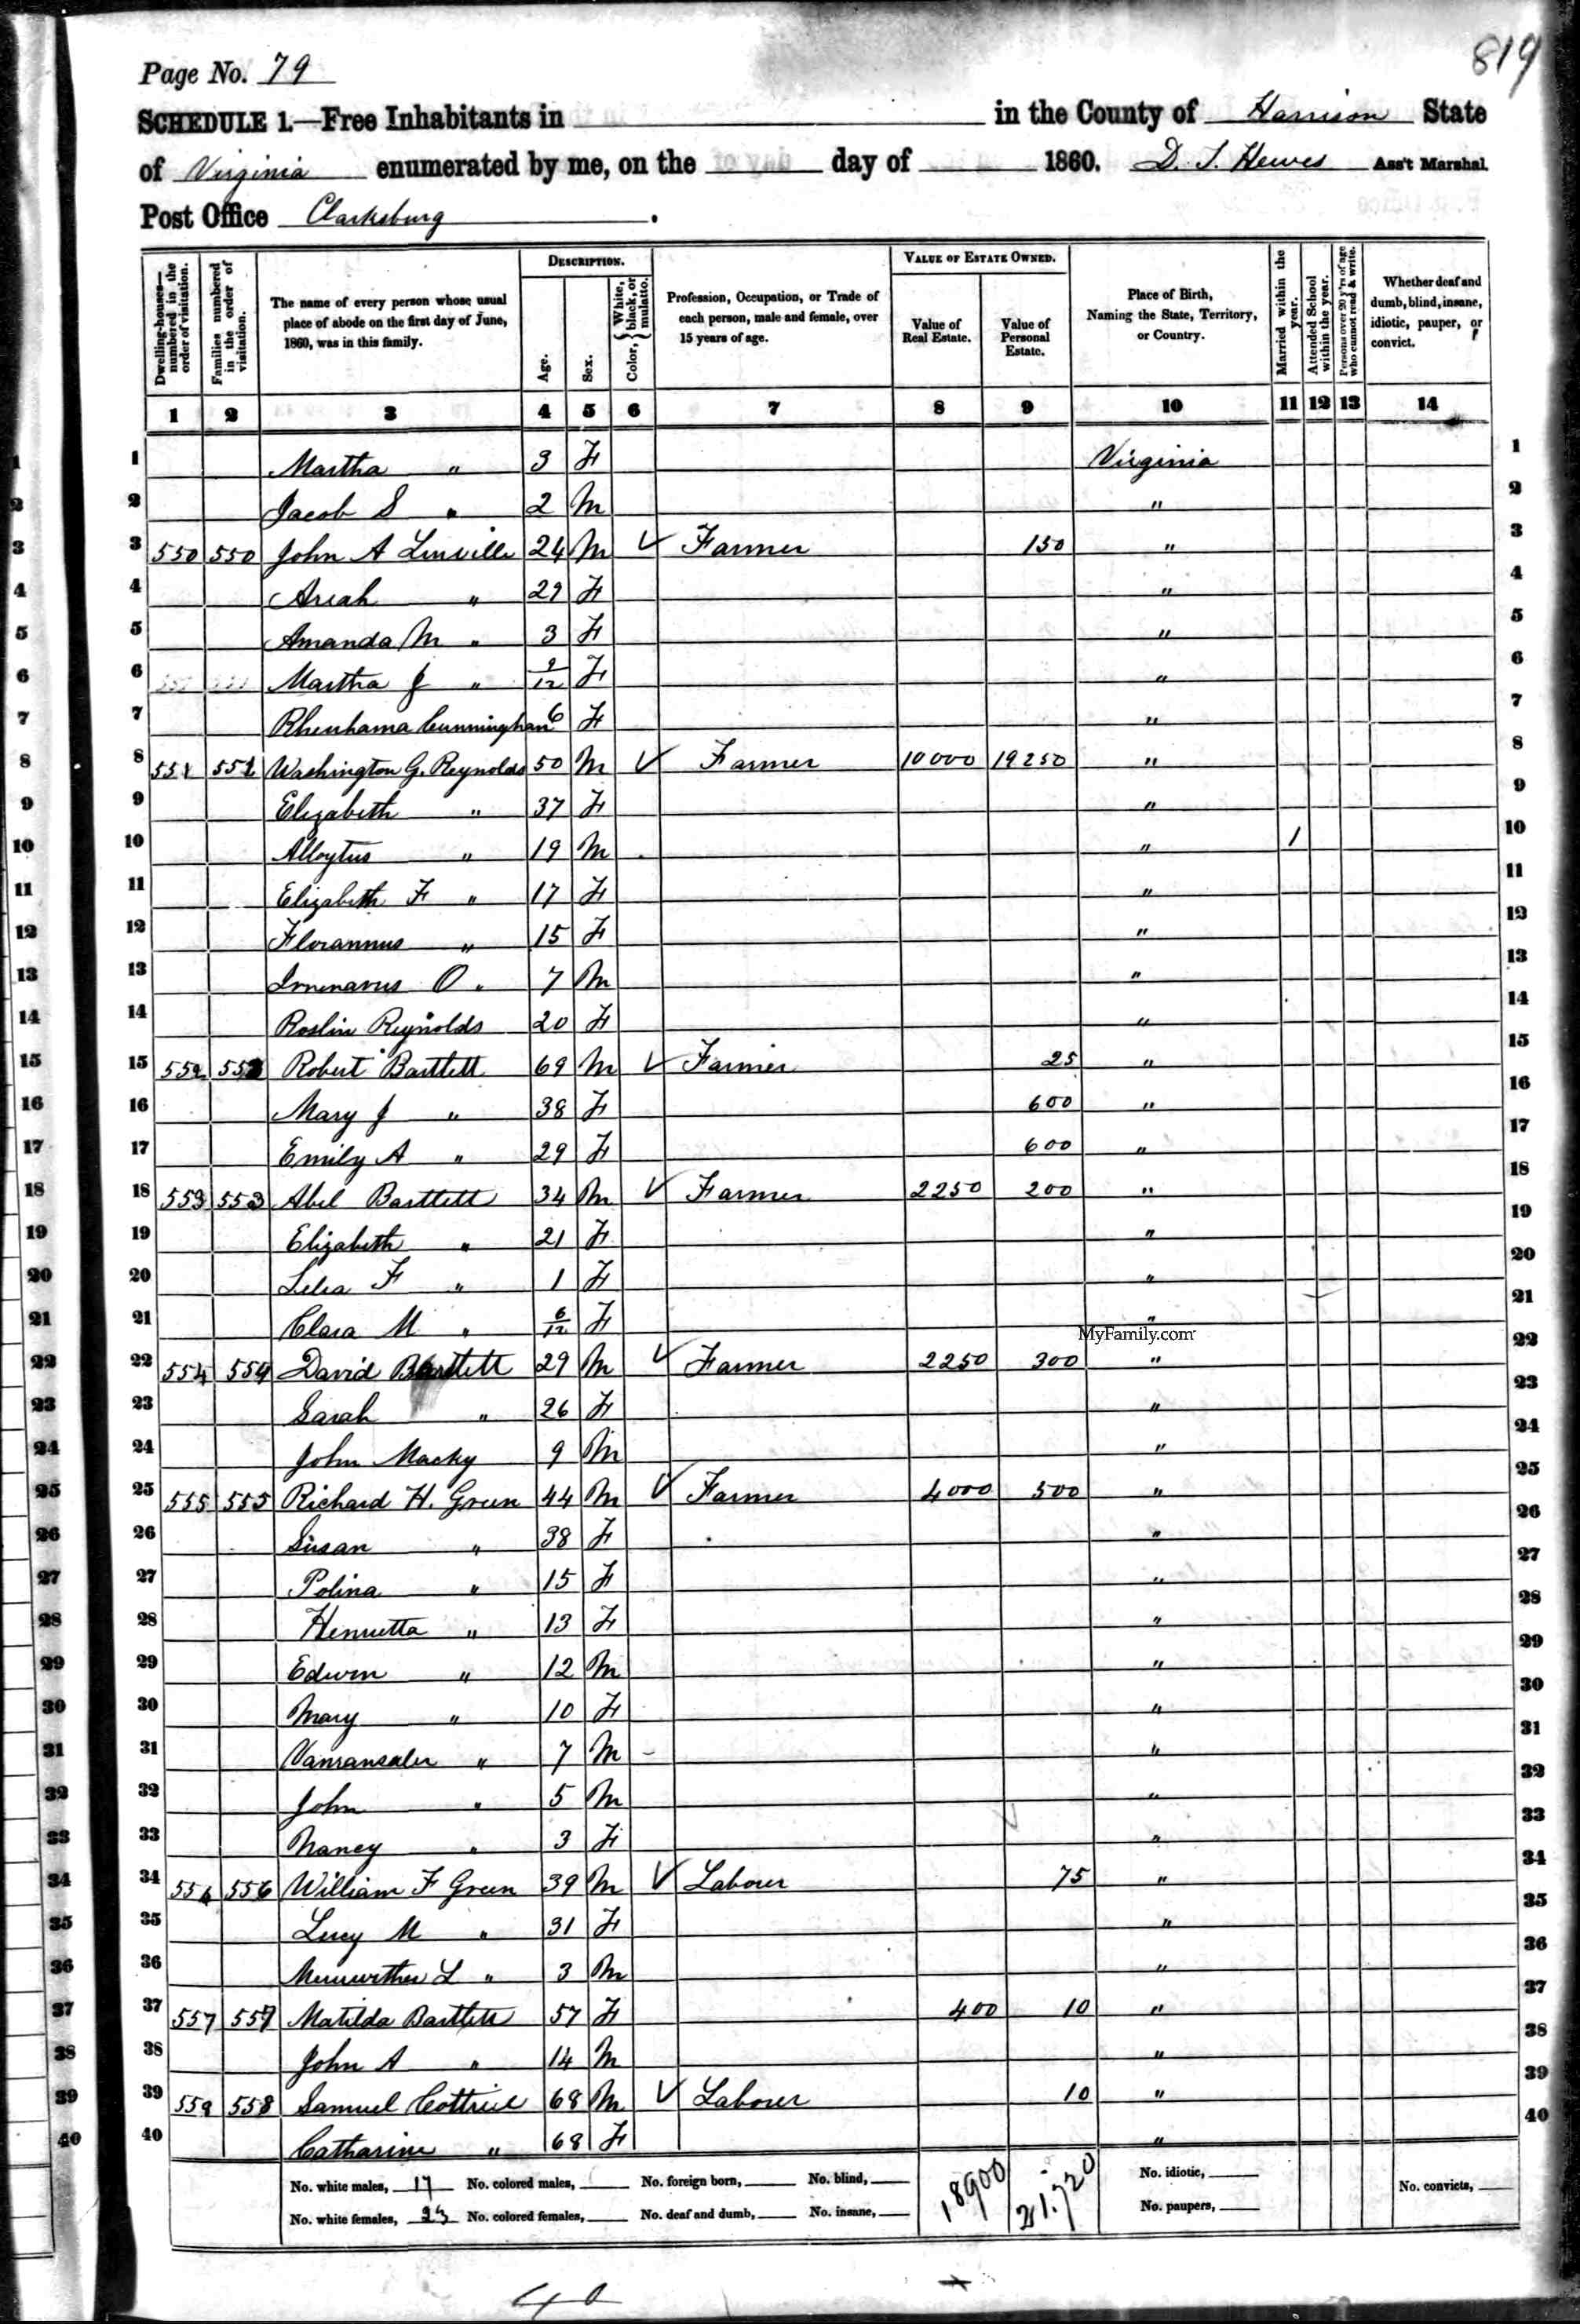 819
Page No. 79
SCHEDULE 1.—Free Inhabitants in in the County of Harrison State
of Virginia enumerated by me, on the day of 1860. D. T. Hewes Ass't Marshal.
Post Office Clarksburg .
Dwelling-houses—numbered in the order of visitation. Families numbered in the order of visitation. The name of every person whose usual place of abode on the first day of June, 1860, was in this family. DESCRIPTION. Age. Sex. Color, { White, black, or mulatto. Profession, Occupation, or Trade of each person, male and female, over 15 years of age. VALUE OF ESTATE OWNED. Value of Real Estate. Value of Personal Estate. Place of Birth, Naming the State, Territory, or Country. Married within the year. Attended School within the year. Persons over 20 y'rs of age who cannot read & write. Whether deaf and dumb, blind, insane, idiotic, pauper, or convict.
1 2 3 4 5 6 7 8 9 10 11 12 13 14
1 Martha " 3 F Virginia 1
2 Jacob S " 2 M " 2
3 550 550 John A Linville 24 M ✓ Farmer 150 " 3
4 Ariah " 29 F " 4
5 Amanda M " 3 F " 5
6 Martha J " 9/12 F " 6
7 Rhenhama Cunningham 6 F " 7
8 551 551 Washington G. Reynolds 50 M ✓ Farmer 10000 19250 " 8
9 Elizabeth " 37 F " 9
10 Alloytus " 19 M " 1 10
11 Elizabeth F " 17 F " 11
12 Florannus " 15 F " 12
13 O " 7 M " 13
14 Roslin Reynolds 20 F " 14
15 552 552 Robert Bartlett 69 M ✓ Farmer 25 " 15
16 Mary J " 38 F 600 " 16
17 Emily A " 29 F 600 " 17
18 553 553 Abel Bartlett 34 M ✓ Farmer 2250 200 " 18
19 Elizabeth " 21 F " 19
20 Lelia F " 1 F " 20
21 Clara M " 6/12 F " 21
MyFamily.com
22 554 554 David Bartlett 29 M ✓ Farmer 2250 300 " 22
23 Sarah " 26 F " 23
24 John Macky 9 M " 24
25 555 555 Richard H. Green 44 M ✓ Farmer 4000 500 " 25
26 Susan " 38 F " 26
27 Polina " 15 F " 27
28 Henrietta " 13 F " 28
29 Edwin " 12 M " 29
30 Mary " 10 F " 30
31 Vanransaler " 7 M " 31
32 John " 5 M " 32
33 Nancy " 3 F " 33
34 556 556 William F Green 39 M ✓ Labourer 75 " 34
35 Lucy M " 31 F " 35
36 L " 3 M " 36
37 557 557 Matilda Bartlett 57 F 400 10 " 37
38 John A " 14 M " 38
39 558 558 Samuel Cottril 68 M ✓ Laborer 10 " 39
40 Catharine " 68 F " 40
No. white males, 17 No. colored males, No. foreign born, No. blind, 18900 21.720 No. idiotic, No. convicts,
No. white females, 23 No. colored females, No. deaf and dumb, No. insane, No. paupers,
40